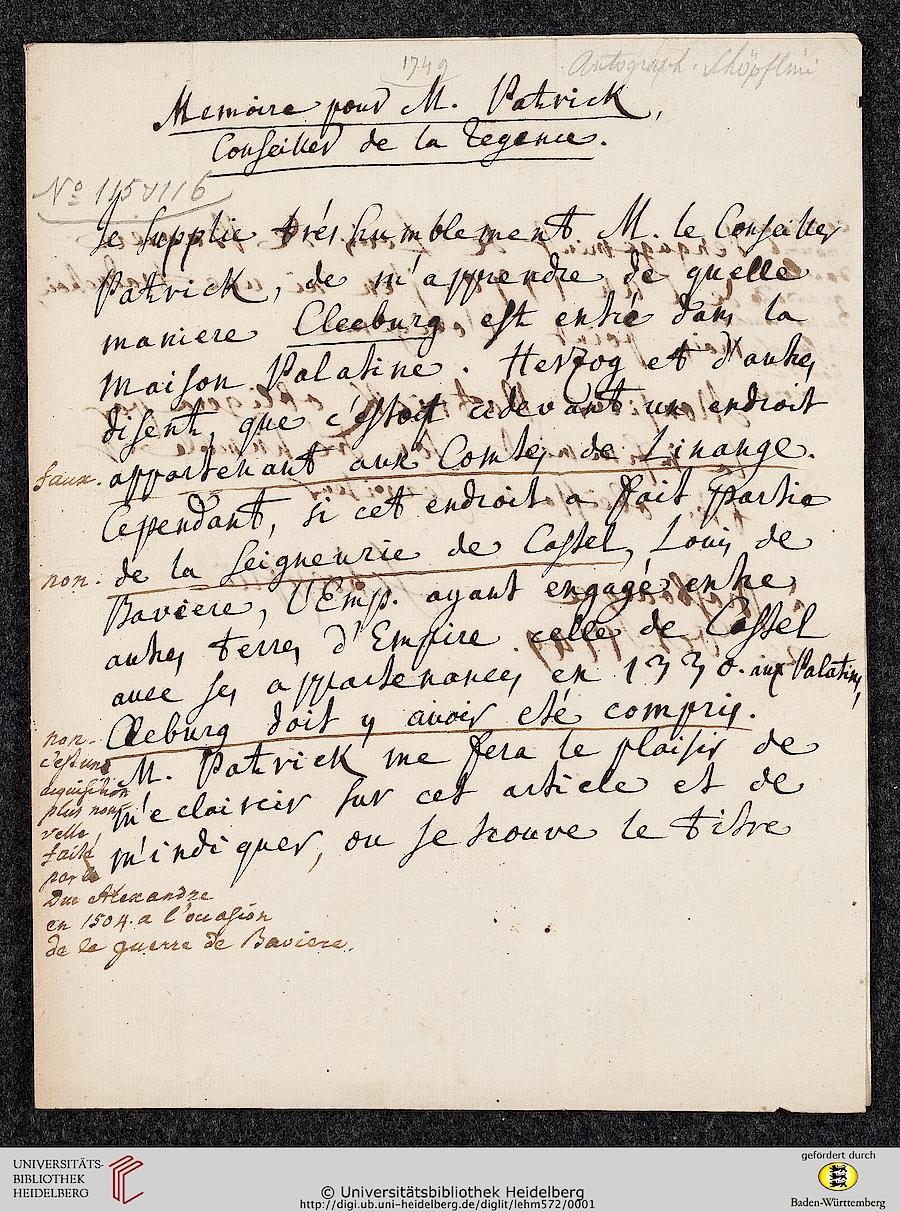 1749
Autograph. Schöpflini
Memoire pour M. Patrick,
Conseiller de la Regence.
No 115 116
Je supplie trés humblement M. le Conseiller
Patrick, de m'apprendre de quelle
maniere Cleeburg est entré dans la
maison Palatine. Herzog et d'autres
disent, que c'estoit cidevant un endroit
faux. appartenant aux Comtes de Linange.
Cependant, si cet endroit a fait partie
non. de la Seigneurie de Cassel, Louis de
Baviere, l'Emp. ayant engagé entre
autres terres d'Empire celle de Cassel
avec ses appartenances en 1330. aux Palatins,
Cleeburg doit y avoir eté compris.
M. Patrick me fera le plaisir de
m'eclaircir sur cet article et de
m'indiquer, ou se trouve le titre
non.
c'est une
aquisition
plus nou-
velle,
faite
par le
Duc Alexandre
en 1504. a l'occasion
de la guerre de Baviere.
UNIVERSITÄTS-
BIBLIOTHEK
HEIDELBERG
© Universitätsbibliothek Heidelberg
http://digi.ub.uni-heidelberg.de/diglit/lehm572/0001
gefördert durch
Baden-Württemberg